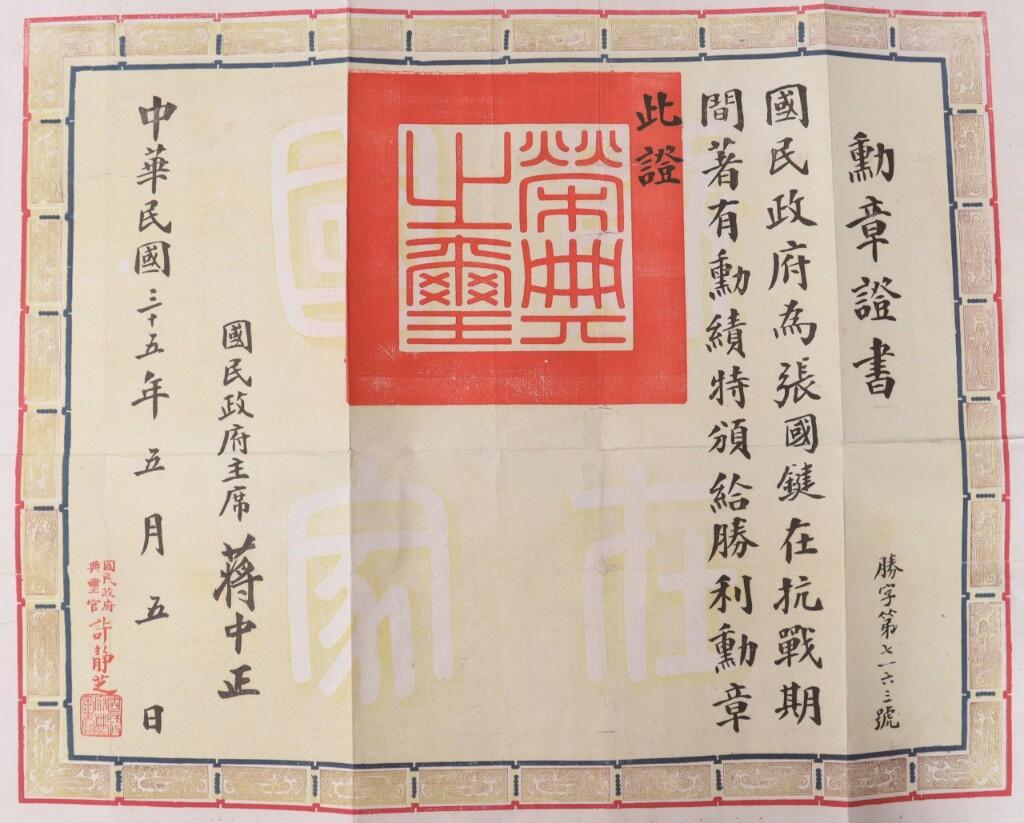 勳章證書
勝字第七一六三號
國民政府為張國鍵在抗戰期
間著有勳績特頒給勝利勳章
此證
榮典之璽
國民政府主席 蔣中正
中華民國三十五年五月五日
國民政府
典璽官 許靜芝